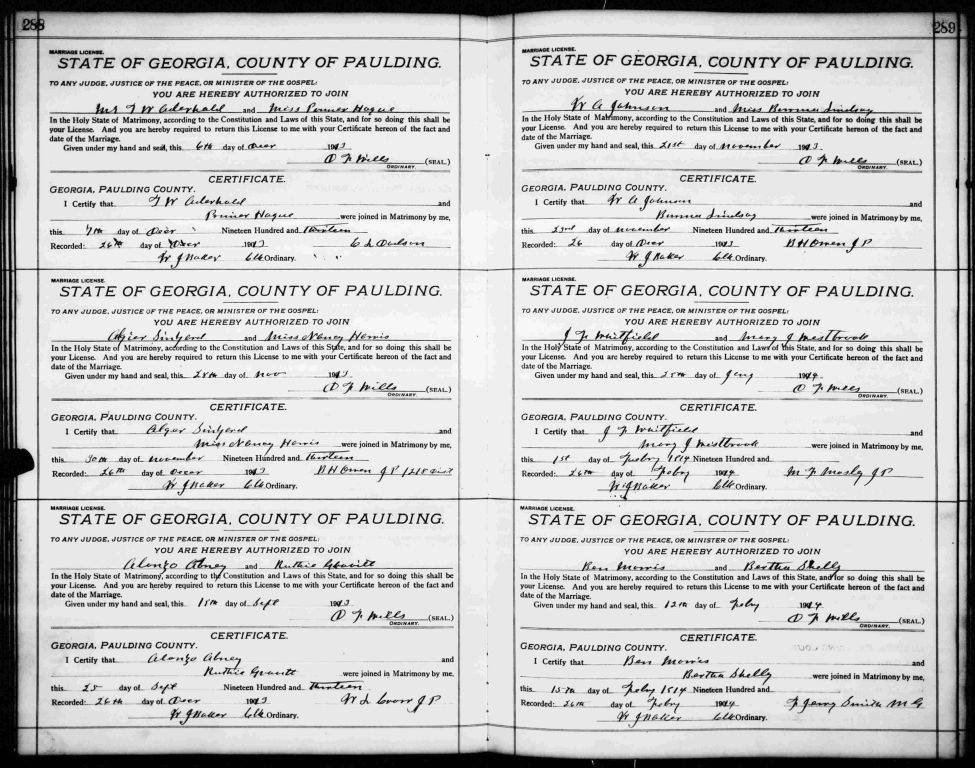 288
MARRIAGE LICENSE.
STATE OF GEORGIA, COUNTY OF PAULDING.
TO ANY JUDGE, JUSTICE OF THE PEACE, OR MINISTER OF THE GOSPEL:
YOU ARE HEREBY AUTHORIZED TO JOIN
Mr T W Aderhold and Miss Hague
In the Holy State of Matrimony, according to the Constitution and Laws of this State, and for so doing this shall be
your License. And you are hereby required to return this License to me with your Certificate hereon of the fact and
date of the Marriage.
Given under my hand and seal, this 6th day of Decr 1913
O F Wills (SEAL.)
ORDINARY.
CERTIFICATE.
GEORGIA, PAULDING COUNTY.
I Certify that T W Aderhold and
Hague were joined in Matrimony by me,
this 7th day of Decr Nineteen Hundred and thirteen
Recorded: 26th day of Decr 1913 C L
W J Baker Clk Ordinary.
MARRIAGE LICENSE.
STATE OF GEORGIA, COUNTY OF PAULDING.
TO ANY JUDGE, JUSTICE OF THE PEACE, OR MINISTER OF THE GOSPEL:
YOU ARE HEREBY AUTHORIZED TO JOIN
and Miss Nancy Harris
In the Holy State of Matrimony, according to the Constitution and Laws of this State, and for so doing this shall be
your License. And you are hereby required to return this License to me with your Certificate hereon of the fact and
date of the Marriage.
Given under my hand and seal, this 28th day of Nov 1913
O F Wills (SEAL.)
ORDINARY.
CERTIFICATE.
GEORGIA, PAULDING COUNTY.
I Certify that Alger and
Miss Nancy Harris were joined in Matrimony by me,
this 30th day of November Nineteen Hundred and thirteen
Recorded: 26th day of Decer 1913 B H Owen J P 1218 Dist
W J Baker Clk Ordinary.
MARRIAGE LICENSE.
STATE OF GEORGIA, COUNTY OF PAULDING.
TO ANY JUDGE, JUSTICE OF THE PEACE, OR MINISTER OF THE GOSPEL:
YOU ARE HEREBY AUTHORIZED TO JOIN
Alonzo Abney and Ruthie
In the Holy State of Matrimony, according to the Constitution and Laws of this State, and for so doing this shall be
your License. And you are hereby required to return this License to me with your Certificate hereon of the fact and
date of the Marriage.
Given under my hand and seal, this 18th day of Sept 1913
O F Wills (SEAL.)
ORDINARY.
CERTIFICATE.
GEORGIA, PAULDING COUNTY.
I Certify that Alonzo Abney and
Ruthie were joined in Matrimony by me,
this 25 day of Sept Nineteen Hundred and thirteen
Recorded: 26th day of Decr 1913 W L J P
W J Baker Clk Ordinary.
289
MARRIAGE LICENSE.
STATE OF GEORGIA, COUNTY OF PAULDING.
TO ANY JUDGE, JUSTICE OF THE PEACE, OR MINISTER OF THE GOSPEL:
YOU ARE HEREBY AUTHORIZED TO JOIN
W A Johnson and Miss Lindsay
In the Holy State of Matrimony, according to the Constitution and Laws of this State, and for so doing this shall be
your License. And you are hereby required to return this License to me with your Certificate hereon of the fact and
date of the Marriage.
Given under my hand and seal, this 21st day of November 1913
O F Wills (SEAL.)
ORDINARY.
CERTIFICATE.
GEORGIA, PAULDING COUNTY.
I Certify that W A Johnson and
Lindsay were joined in Matrimony by me,
this 23rd day of November Nineteen Hundred and thirteen
Recorded: 26 day of Decr 1913 B H Owen J P
W J Baker Clk Ordinary.
MARRIAGE LICENSE.
STATE OF GEORGIA, COUNTY OF PAULDING.
TO ANY JUDGE, JUSTICE OF THE PEACE, OR MINISTER OF THE GOSPEL:
YOU ARE HEREBY AUTHORIZED TO JOIN
J F Whitfield and Mary J Westbrook
In the Holy State of Matrimony, according to the Constitution and Laws of this State, and for so doing this shall be
your License. And you are hereby required to return this License to me with your Certificate hereon of the fact and
date of the Marriage.
Given under my hand and seal, this 25th day of Jany 1914
O F Wills (SEAL.)
ORDINARY.
CERTIFICATE.
GEORGIA, PAULDING COUNTY.
I Certify that J F Whitfield and
Mary J Westbrook were joined in Matrimony by me,
this 1st day of Feby 1914 Nineteen Hundred and
Recorded: 26th day of Feby 1914 M F Mosley J P
W J Baker Clk Ordinary.
MARRIAGE LICENSE.
STATE OF GEORGIA, COUNTY OF PAULDING.
TO ANY JUDGE, JUSTICE OF THE PEACE, OR MINISTER OF THE GOSPEL:
YOU ARE HEREBY AUTHORIZED TO JOIN
Ben Morris and Bertha Shelly
In the Holy State of Matrimony, according to the Constitution and Laws of this State, and for so doing this shall be
your License. And you are hereby required to return this License to me with your Certificate hereon of the fact and
date of the Marriage.
Given under my hand and seal, this 12th day of Feby 1914
O F Wills (SEAL.)
ORDINARY.
CERTIFICATE.
GEORGIA, PAULDING COUNTY.
I Certify that Ben Morris and
Bertha Shelly were joined in Matrimony by me,
this 15th day of Feby 1914 Nineteen Hundred and
Recorded: 26th day of Feby 1914 F Jerry Smith M G
W J Baker Clk Ordinary.